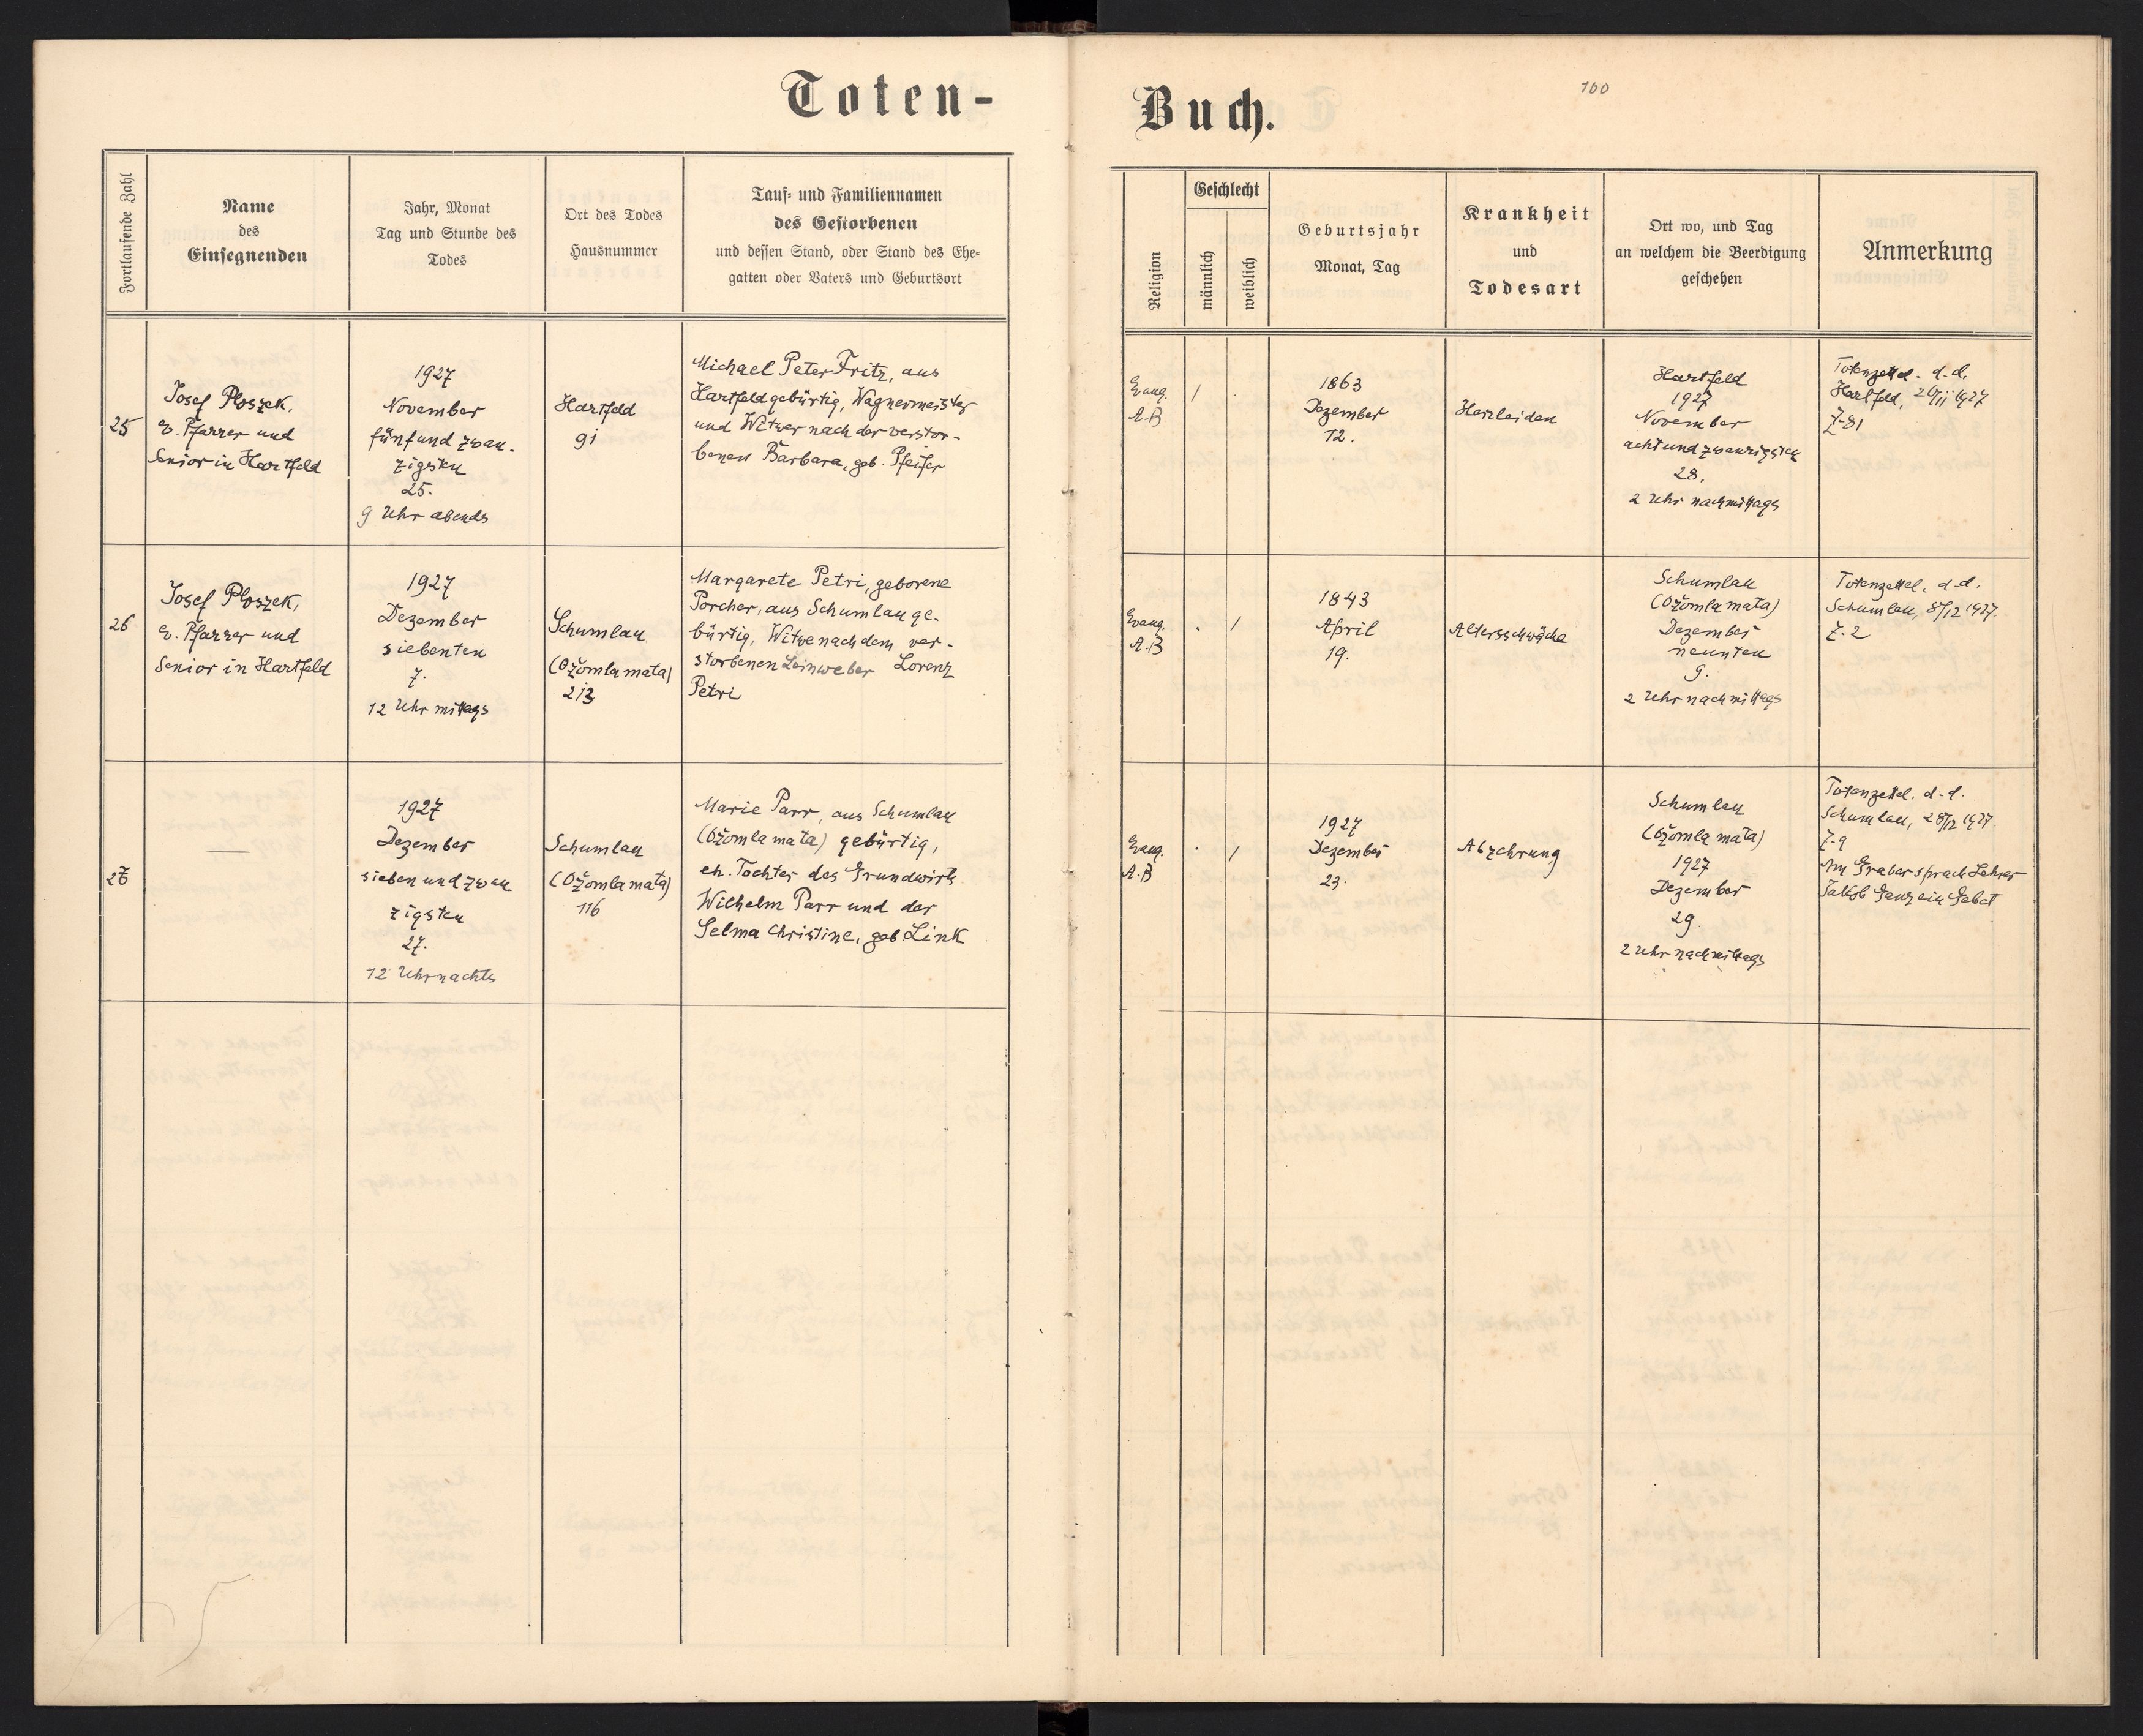 Toten-
Fortlaufende Zahl
Name
des
Einsegnenden
Jahr, Monat
Tag und Stunde des
Todes
Ort des Todes
Hausnummer
Tauf- und Familiennamen
des Gestorbenen
und dessen Stand, oder Stand des Ehe-
gatten oder Vaters und Geburtsort
25
Josef Płoszek,
ev. Pfarrer und
Senior in Hartfeld
1927
November
fünfund zwan-
zigsten
25.
9 Uhr abends
Hartfeld
91
Michael Peter Fritz, aus
Hartfeld gebürtig, Wagnermeister
und Witwer nach der verstor-
benen Barbara, geb. Pfeifer
26
Josef Płoszek,
ev. Pfarrer und
Senior in Hartfeld
1927
Dezember
siebenten
7.
12 Uhr mittags
Schumlau
(Ożomla mata)
213
Margarete Petri, geborene
Porcher, aus Schumlau ge-
bürtig, Witwe nach dem ver-
storbenen Leinweber Lorenz
Petri
27
—
1927
Dezember
sieben und zwan
zigsten
27.
12 Uhr nachts
Schumlau
(Ożomla mata)
116
Marie Parr, aus Schumlau
(Ożomla mata) gebürtig,
eh. Tochter des Grundwirts
Wilhelm Parr und der
Selma Christine, geb Link
100
Buch.
Religion
Geschlecht
männlich
weiblich
Geburtsjahr
Monat, Tag
Krankheit
und
Todesart
Ort wo, und Tag
an welchem die Beerdigung
geschehen
Anmerkung
Evang.
A.B
/
.
1863
Dezember
12.
Herzleiden
Hartfeld
1927
November
achtundzwanzigsten
28.
2 Uhr nachmittags
Totenzettel. d. d.
Hartfeld, 26/11 1927
Z-81
Evang.
A.B
.
/
1843
April
19.
Altersschwäche
Schumlau
(Ożomla mata)
Dezember
neunten
9.
2 Uhr nachmittags
Totenzettel. d. d.
Schumlau, 8/12 1927.
Z. 2
Evang.
A.B
.
/
1927
Dezember
23.
Abzehrung
Schumlau
(Ożomla mata)
1927
Dezember
29.
2 Uhr nachmittags
Totenzettel. d. d.
Schumlau, 28/12 1927.
Z-9
Am Grabe sprach Lehrer
Jakob Ganz ein Gebet